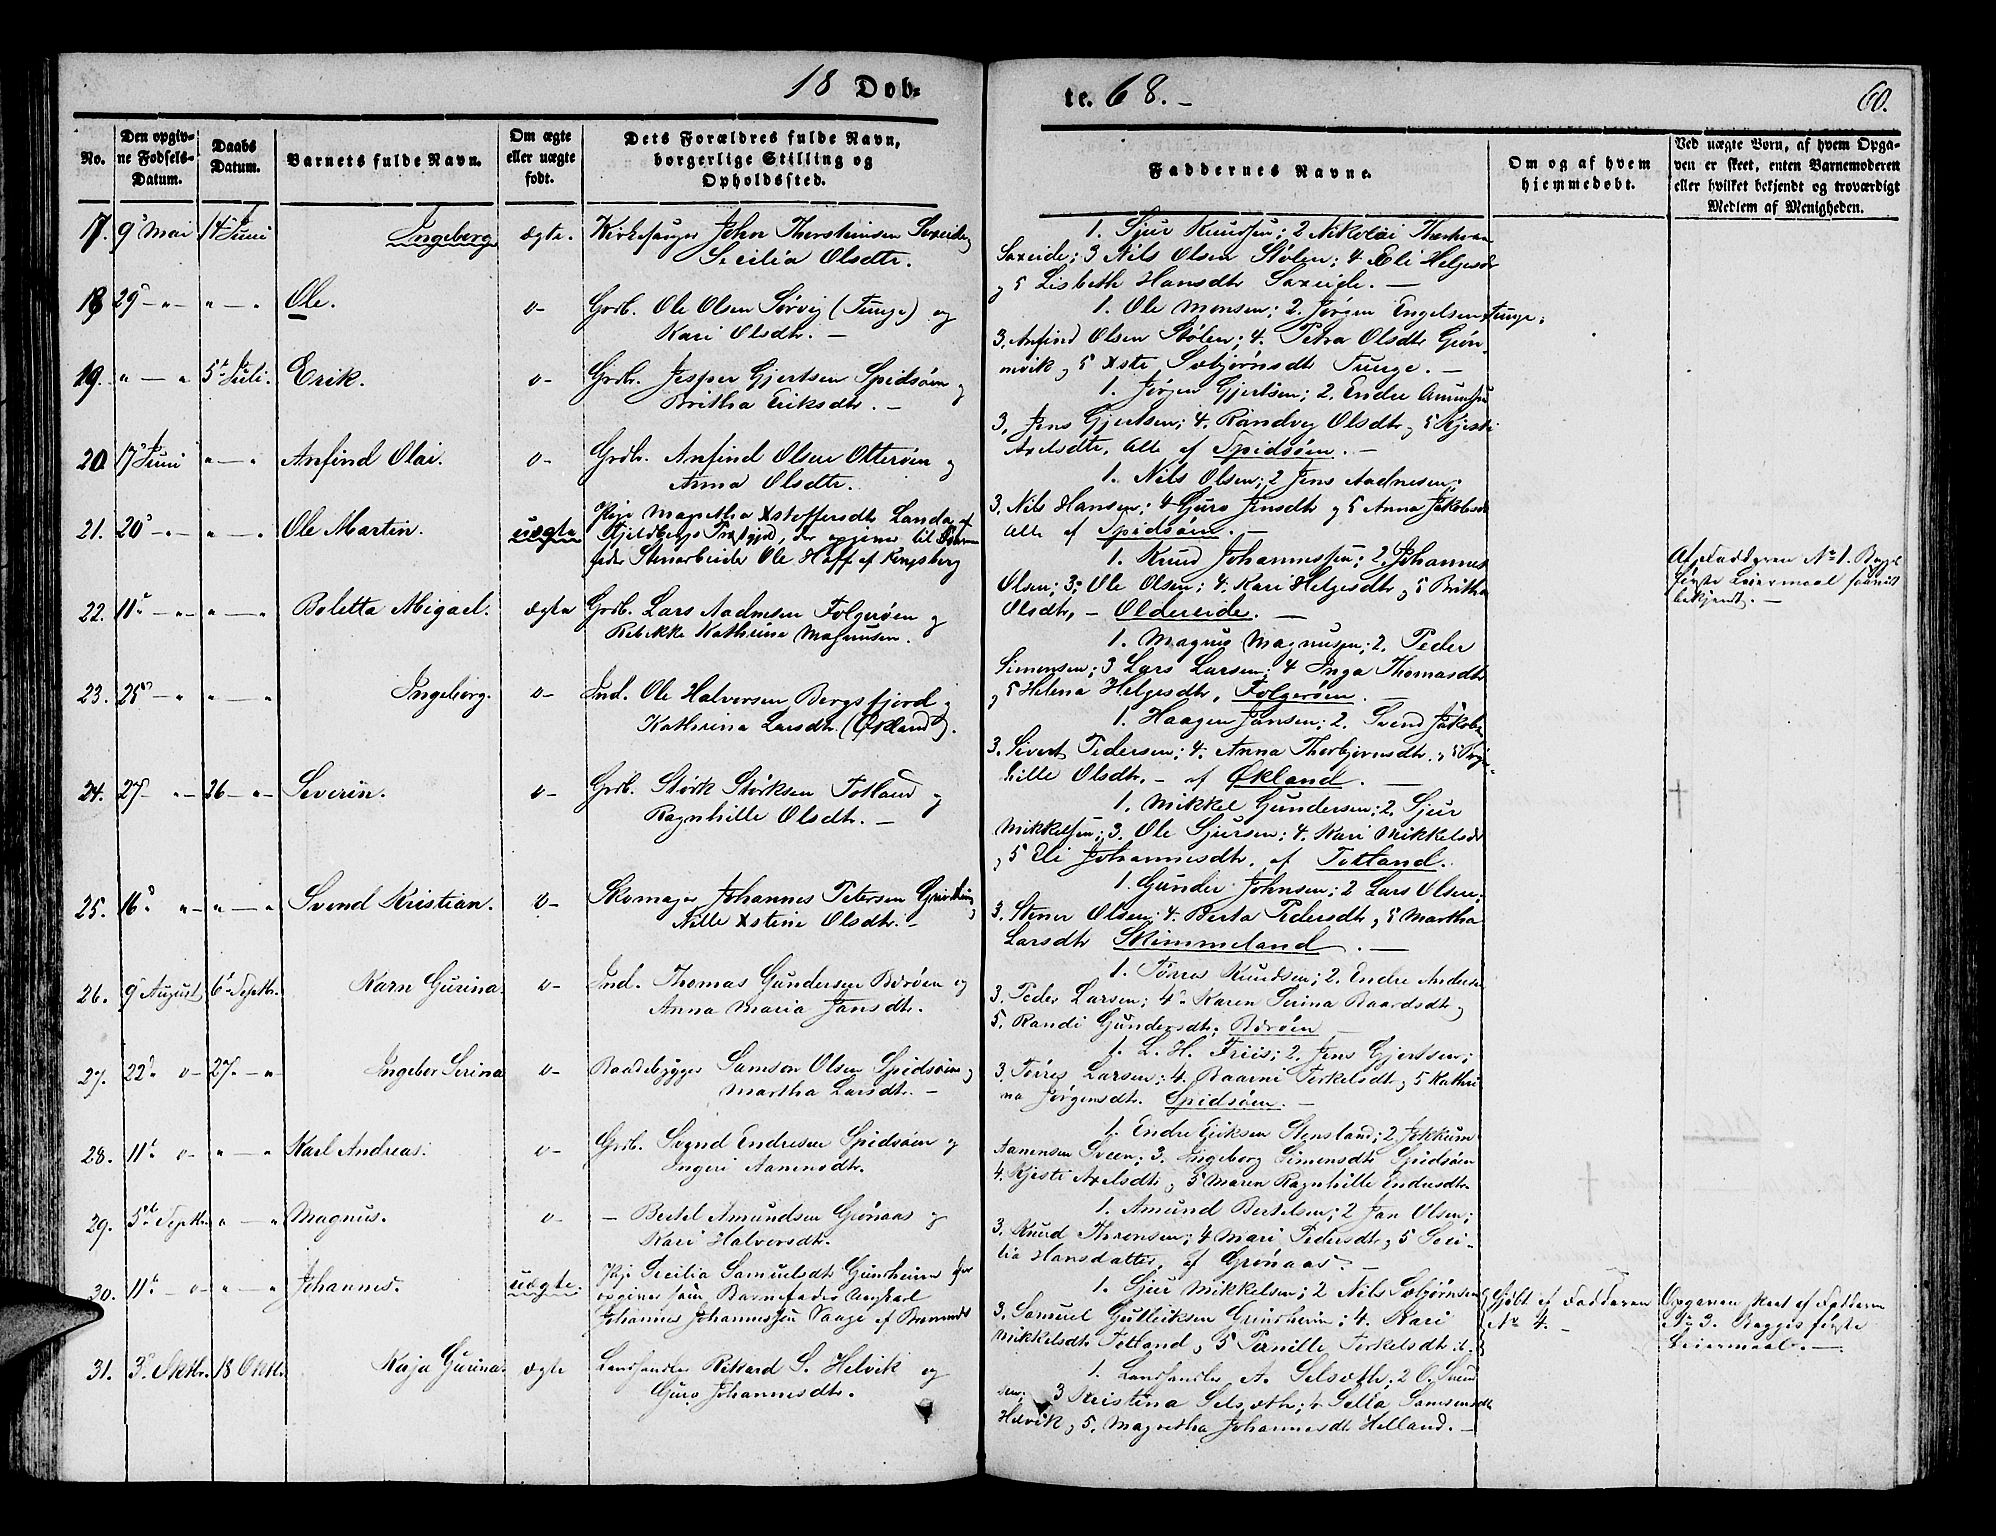 18 Døb-
te. 68.-
60.
No.
Den opgiv-
ne Fødsels-
Datum.
Daabs
Datum.
Barnets fulde Navn.
Om ægte
eller uægte
født.
Dets Forældres fulde Navn,
borgerlige Stilling og
Opholdssted.
Faddernes Navne.
Om og af hvem
hjemmedøbt.
Ved uægte Børn, af hvem Opga-
ven er skeet, enten Barnemoderen
eller hvilket bekjendt og troværdigt
Medlem af Menigheden.
17. 9 Mai 14 Juni Ingeborg ægte. Kirkesanger John Thorsteinsen Saxeide
Secilia Olsdtr.
1. Sjur Knudsen; 2 Nikolai
Saxeide; 3 Nils Olsen Stølen; 4 Eli Helgesdr
og 5 Lisbeth Hansdtr Saxeide. -
18 29 - " - " - " Ole. o- Grdb. Ole Olsen Sørvig (Tunge) og
Kari Olsdtr. -
1. Ole Monsen; 2. Jørgen Engelsen Tunge;
3. Anfind Olsen Stølen; 4. Petra Olsdtr Grøn-
nvik og 5 Xste Sæbjørnsdtr Tunge. -
19. " - " 5 Juli. Erik. o- Grdb. Jesper Gjertsen Spidsøen og
Britha Eriksdtr. -
1. Jørgen Gjertsen; 2. Endre Amundsen
3. Jens Gjertsen; 4. Randvey Olsdtr og 5 Kjesti
Axelsdtr, Alle af Spidsøen. -
20. 17 Juni " - " Anfind Olai. o- Grdb. Anfind Olsen Otterøen og
Anna Olsdtr.
1. Nils Olsen; 2 Jens Aadnesen;
3. Nils Hansen; 4 Guro Jensdtr og 5 Anna Jakobsdr
Alle af Spidsøen. -
21. 20 - " - " - " Ole Martin. uægte Pige Magretha Xstoffersdtr Landa af
Fjeldbergs Præstgjeld, der opgiver til Barne-
fader Stenarbeider Ole Hoff af Kongsberg
1. Knud Johannessen; 2. Johannes
Olsen; 3. Ole Olsen; 4. Kari Helgesdtr og 5 Britha
Olsdtr, - Oldereide. -
Af Fadderen No 1. Begges
første Leiermaal saavidt
bekjendt. -
22. 11 - " - " - " Boletta Migael. ægte Grdb. Lars Aadnesen Folgerøen og
Rebekka Kathrine Magnusen.
1. Magnus Magnussen; 2. Peder
Simonsen; 3 Lars Larsen; 4 Inga Thomasdtr
og 5 Helena Helgesdtr, Folgerøen. -
23. 25 - " " - " Ingeborg. o- Ind. Ole Halversen Bergsfjord og
Kathrina Larsdtr. (Økland).
1. Haagen Jansen; 2. Svend Jakobs
3. Sivert Pedersen; 4. Anna Thorbjørnsdtr. og 5
hille Olsdtr. - af Økland. -
24. 27 - " - 26 - " - Severin. o- Grdb. Størk Størksen Totland og
Ragnhille Olsdtr. -
1. Mikkel Gundersen; 2. Sjur
Mikkelsen; 3. Ole Sjursen; 4. Kari Mikkelsdr
og 5 Eli Johannesdtr, af Totland.
25. 16 " - " - " Svend Kristian. o- Skomager Johannes Petersen
Nille Xstine Olsdtr. -
1. Gunder Johnsen; 2 Lars Olsen;
3. Stener Olsen; 4. Berta Pedersdtr og 5 Martha
Larsdtr Skimmeland. -
26. 9 August 6 Septbr. Karn Gurina. o- Ind. Thomas Gundersen Børøen og
Anna Maria Jansdtr.
1. Tørres Knudsen; 2. Endre Anders
3. Peder Larsen; 4. Karen Serina Baardsdtr og
5. Randi Gundersdtr. Børøen
27. 22 o- 27. - " Ingebor Serina o- Baadebygger Samson Olsen Spidsøen og
Martha Larsdtr. -
1. L. H. Friis; 2. Jens Gjertsen;
3. Tørres Larsen; 4. Baarni Terkelsdtr og 5 Kathri-
na Jørgensdtr. Spidsøen. -
28. 11 o- " - " Karl Andreas. o- Grdb. Svend Endresen Spidsøen og
Ingeri Aamundtr.
1. Endre Eriksen Stensland; 2 Jokkum
Aamnsen Sveen; 3. Ingeborg Simensdtr Spidsøen
4. Kjesti Axelsdtr og 5 Maren Ragnhille Endresdtr.
29. 5 Septbr. " - " Magnus. o- - Bertel Amundsen Grønaas og
Kari Halversdtr.
1. Amund Bertelsen; 2 Jan Olsen;
3. Knud Thronsen; 4 Mari Pedersdtr og 5 Seci-
lia Hansdatter, af Grønaas. -
30. 11 - o- " - " Johannes. uægte. Pige Secilia Samuelsdtr Grindheim der
opgiver som Barnefader Ungkarl
Johannes Johannessen Vaage af
1. Sjur Mikkelsen; 2 Nils Sæbjørnsen
3. Samuel Gulleiksen Grindheim; 4. Kari
Mikkelsdtr Totland og 5 Pernille Terkelsdtr
Hjdbt af Fadderen
No 4. -
Opgaven skeet af Fadderen
No 3. Begges første
Leiermaal. -
31. 3 Oktbr. 18 Oktbr. Kaja Gurina. ægte Landhandler Rikard S. Helvik og
Guro Johannesdtr.
1. Landhandler A. Selsøth; 2 O. Svend
sen; 3 Kristina Selsøth; 4 Sella Samsensdtr
Helvik og 5. Magretha Johannesdtr Helland. -